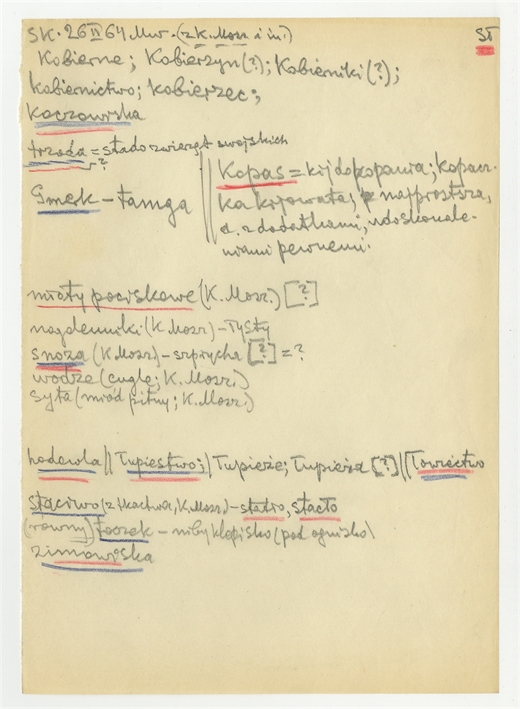 SK. 26 IV 64 Mw. (z K. Mosz. i in.)
ST
Kobierne; Kobierzyn (?); Kobierniki (?);
kobiernictwo; kobierzec;
koczowiska
trzoda = stado zwierząt swojskich
?
Gmerk – tamga
Kopas = kij do kopania; kopacz-
ka kijowata; najprostsza,
a. z dodatkami, udoskonale-
niami pewnemi.
mioty pociskowe (K. Mosz.) [?]
nagolenniki (K. Mosz) –
snoza (K. Mosz) – szprycha [?] = ?
wodze (cugle; K. Mosz.)
syta (miód pitny; K. Mosz.)
hodowla || Łupiestwo; Łupieże; Łupieża [?] || Łowiectwo
staciwo (z tkactwa, K. Mosz) – statio, stacło
(równy) toczek – niby klepisko (pod ognisko)
zimowiska